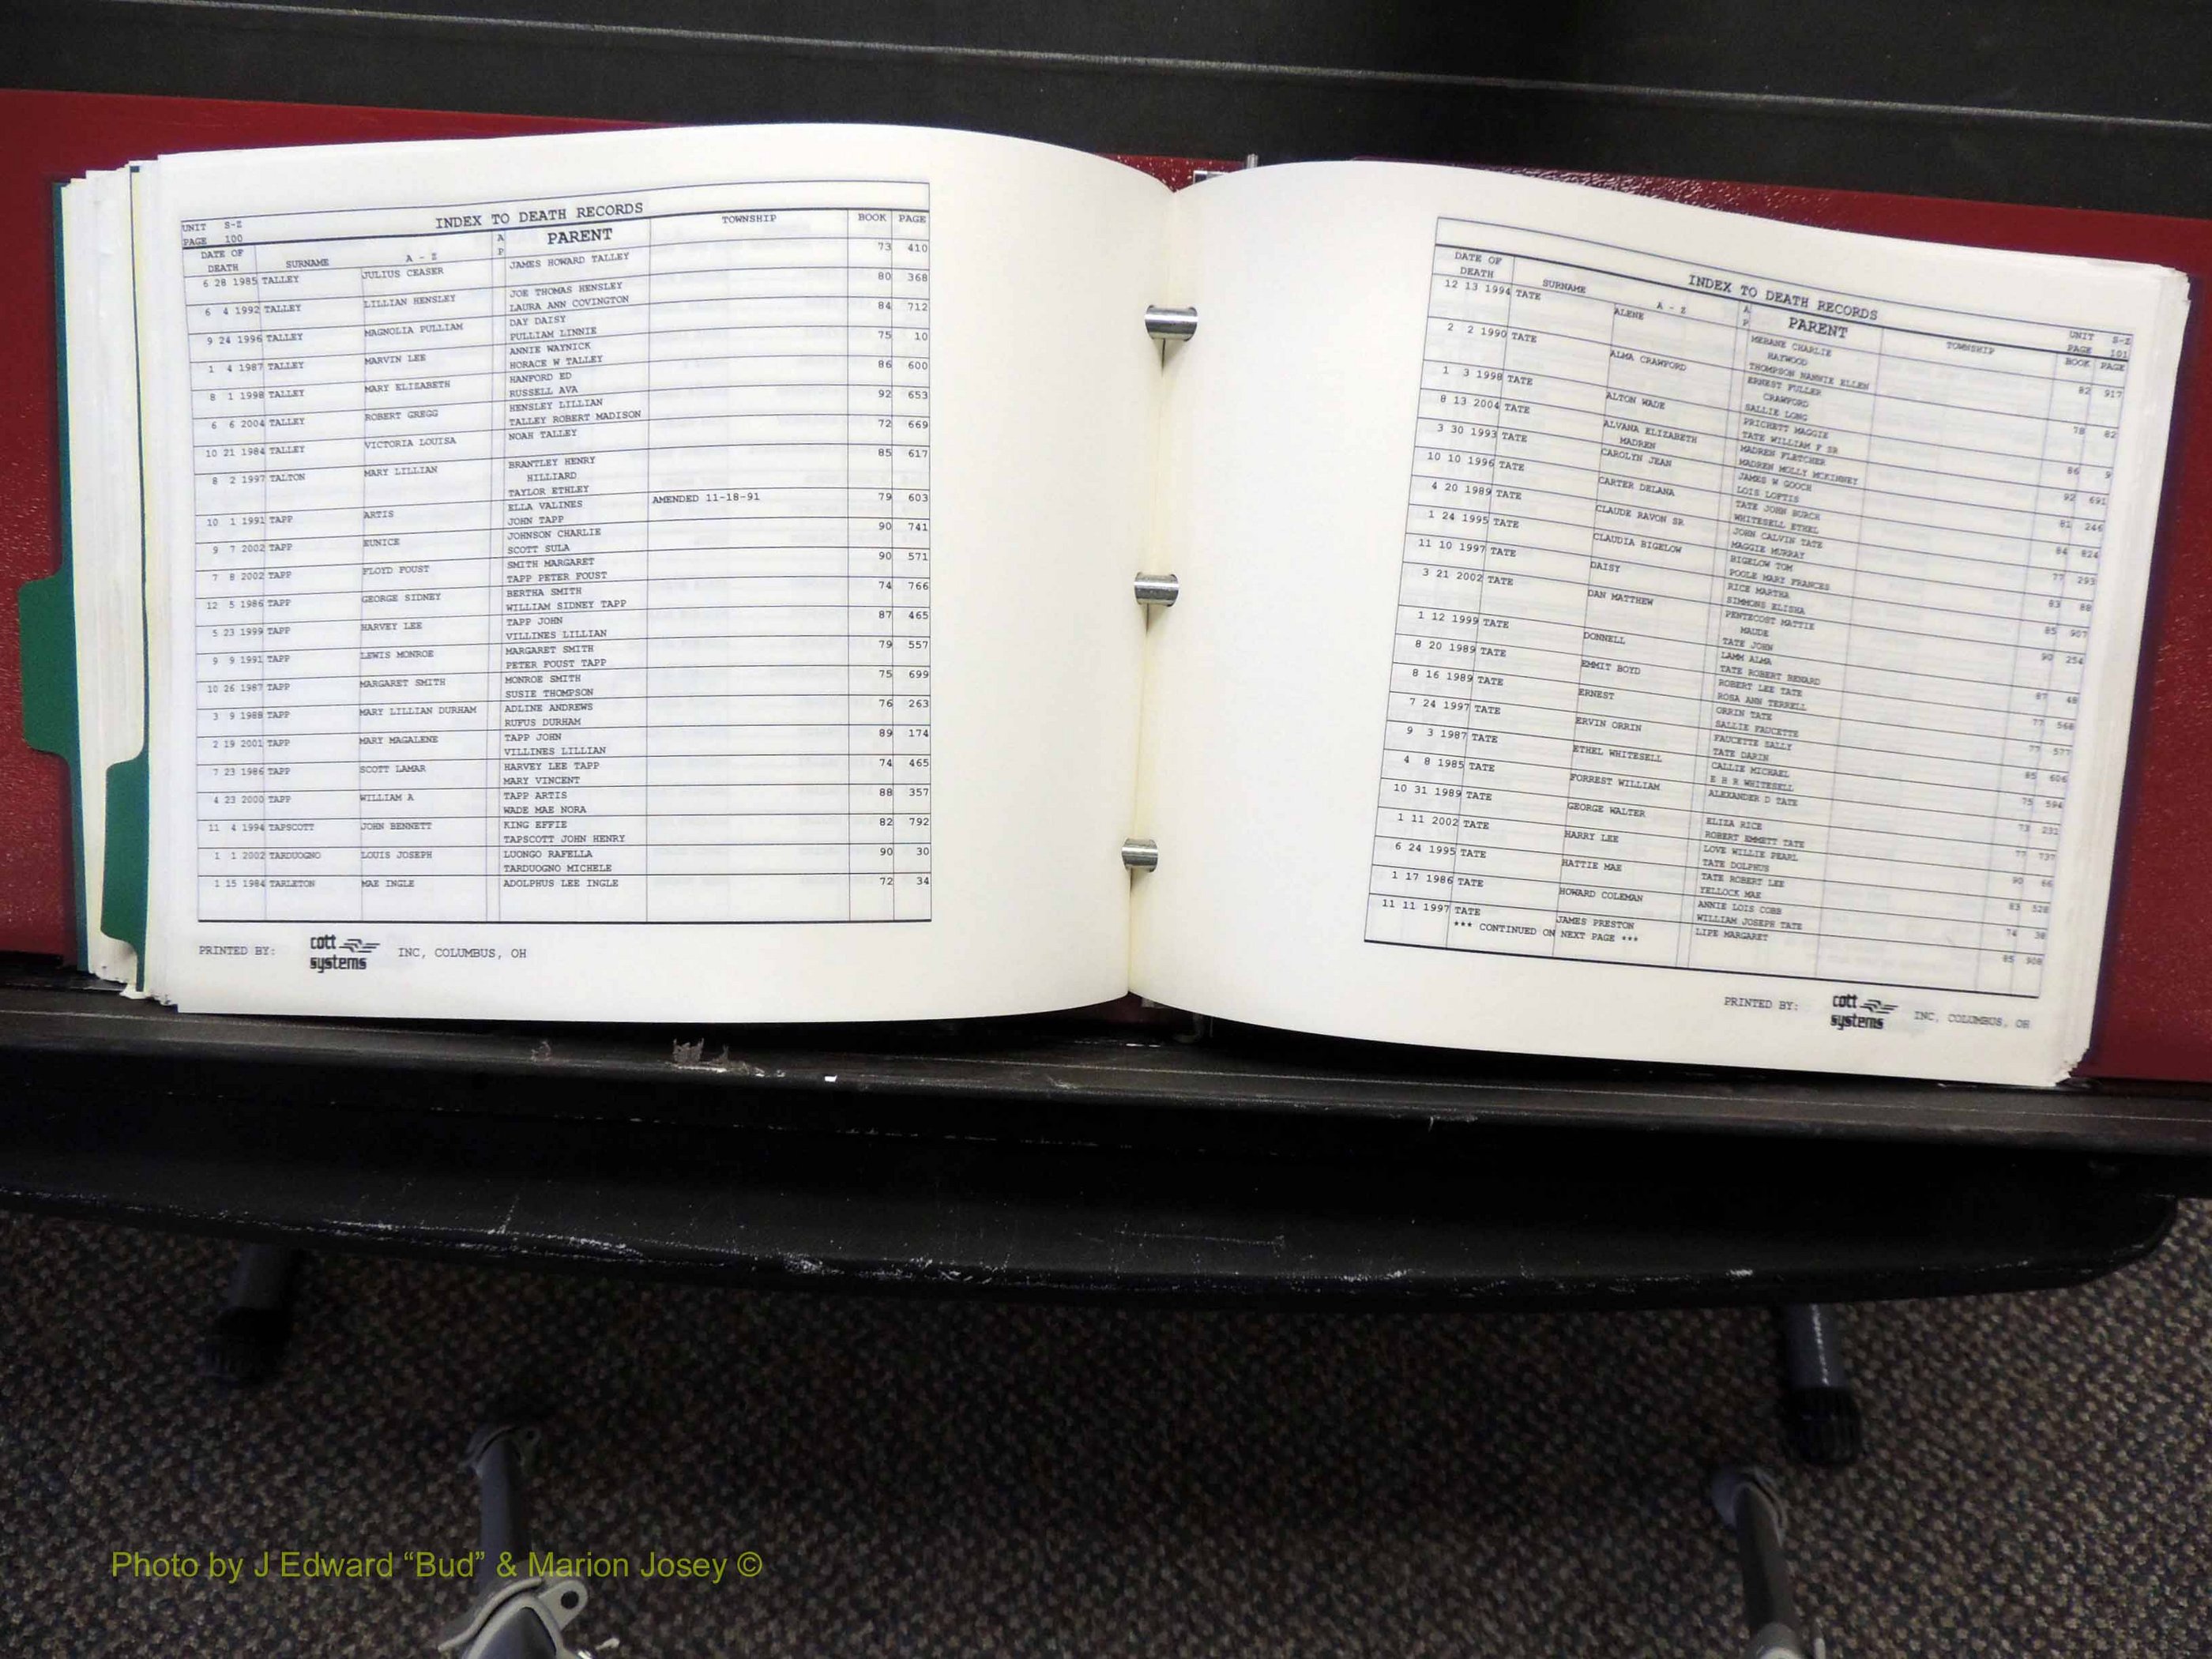 INDEX TO DEATH RECORDS
UNIT S-Z
PAGE 100
DATE OF DEATH SURNAME A - Z A P PARENT TOWNSHIP BOOK PAGE
6 28 1985 TALLEY JULIUS CEASER JAMES HOWARD TALLEY 73 410
6 4 1992 TALLEY LILLIAN HENSLEY JOE THOMAS HENSLEY 80 368
LAURA ANN COVINGTON
9 24 1996 TALLEY MAGNOLIA PULLIAM DAY DAISY 84 712
PULLIAM LINNIE
1 4 1987 TALLEY MARVIN LEE ANNIE WAYNICK 75 10
HORACE W TALLEY
8 1 1998 TALLEY MARY ELIZABETH HANFORD ED 86 600
RUSSELL AVA
6 6 2004 TALLEY ROBERT GREGG HENSLEY LILLIAN 92 653
TALLEY ROBERT MADISON
10 21 1984 TALLEY VICTORIA LOUISA NOAH TALLEY 72 669
8 2 1997 TALTON MARY LILLIAN BRANTLEY HENRY 85 617
HILLIARD
TAYLOR ETHLEY
10 1 1991 TAPP ARTIS ELLA VALINES AMENDED 11-18-91 79 603
JOHN TAPP
9 7 2002 TAPP EUNICE JOHNSON CHARLIE 90 741
SCOTT SULA
7 8 2002 TAPP FLOYD FOUST SMITH MARGARET 90 571
TAPP PETER FOUST
12 5 1986 TAPP GEORGE SIDNEY BERTHA SMITH 74 766
WILLIAM SIDNEY TAPP
5 23 1999 TAPP HARVEY LEE TAPP JOHN 87 465
VILLINES LILLIAN
9 9 1991 TAPP LEWIS MONROE MARGARET SMITH 79 557
PETER FOUST TAPP
10 26 1987 TAPP MARGARET SMITH MONROE SMITH 75 699
SUSIE THOMPSON
3 9 1988 TAPP MARY LILLIAN DURHAM ADLINE ANDREWS 76 263
RUFUS DURHAM
2 19 2001 TAPP MARY MAGALENE TAPP JOHN 89 174
VILLINES LILLIAN
7 23 1986 TAPP SCOTT LAMAR HARVEY LEE TAPP 74 465
MARY VINCENT
4 23 2000 TAPP WILLIAM A TAPP ARTIS 88 357
WADE MAE NORA
11 4 1994 TAPSCOTT JOHN BENNETT KING EFFIE 82 792
TAPSCOTT JOHN HENRY
1 1 2002 TARDUOGNO LOUIS JOSEPH LUONGO RAFELLA 90 30
TARDUOGNO MICHELE
1 15 1984 TARLETON MAE INGLE ADOLPHUS LEE INGLE 72 34
PRINTED BY: cott systems INC, COLUMBUS, OH
INDEX TO DEATH RECORDS
UNIT S-Z
PAGE 101
DATE OF DEATH SURNAME A - Z A P PARENT TOWNSHIP BOOK PAGE
12 13 1994 TATE ALENE MEBANE CHARLIE 82 917
HAYWOOD
THOMPSON NANNIE ELLEN
2 2 1990 TATE ALMA CRAWFORD ERNEST FULLER 78 82
CRAWFORD
SALLIE LONG
1 3 1998 TATE ALTON WADE PRICHETT MAGGIE 86 9
TATE WILLIAM F SR
8 13 2004 TATE ALVANA ELIZABETH MADREN FLETCHER 92 691
MADREN MADREN MOLLY MCKINNEY
3 30 1993 TATE CAROLYN JEAN JAMES W GOOCH 81 246
LOIS LOFTIS
10 10 1996 TATE CARTER DELANA TATE JOHN BURCH 84 824
WHITESELL ETHEL
4 20 1989 TATE CLAUDE RAVON SR JOHN CALVIN TATE 77 293
MAGGIE MURRAY
1 24 1995 TATE CLAUDIA BIGELOW BIGELOW TOM 83 88
POOLE MARY FRANCES
11 10 1997 TATE DAISY RICE MARTHA 85 907
SIMMONS ELISHA
3 21 2002 TATE DAN MATTHEW PENTECOST MATTIE 90 254
MAUDE
TATE JOHN
1 12 1999 TATE DONNELL LAMM ALMA 87 48
TATE ROBERT BENARD
8 20 1989 TATE EMMIT BOYD ROBERT LEE TATE 77 568
ROSA ANN TERRELL
8 16 1989 TATE ERNEST ORRIN TATE 77 577
SALLIE FAUCETTE
7 24 1997 TATE ERVIN ORRIN FAUCETTE SALLY 85 606
TATE DARIN
9 3 1987 TATE ETHEL WHITESELL CALLIE MICHAEL 75 594
E H R WHITESELL
4 8 1985 TATE FORREST WILLIAM ALEXANDER D TATE 73 231
10 31 1989 TATE GEORGE WALTER ELIZA RICE 77 737
ROBERT EMMETT TATE
1 11 2002 TATE HARRY LEE LOVE WILLIE PEARL 90 66
TATE DOLPHUS
6 24 1995 TATE HATTIE MAE TATE ROBERT LEE 83 528
YELLOCK MAE
1 17 1986 TATE HOWARD COLEMAN ANNIE LOIS COBB 74 38
WILLIAM JOSEPH TATE
11 11 1997 TATE JAMES PRESTON LIPE MARGARET 85 908
*** CONTINUED ON NEXT PAGE ***
PRINTED BY: cott systems INC, COLUMBUS, OH
Photo by J Edward “Bud” & Marion Josey ©